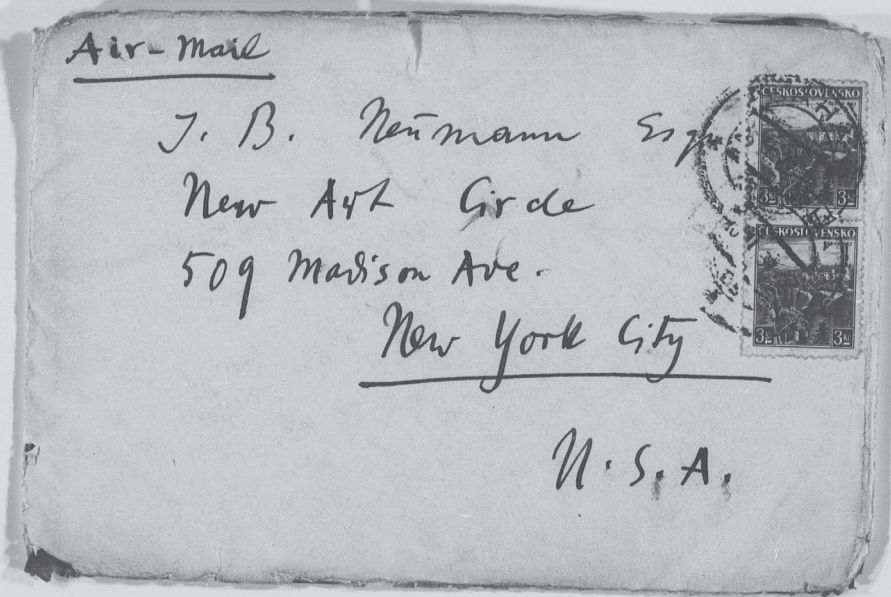 Air-Mail
J. B. Neumann Esq.
New Art Circle
509 Madison Ave.
New York City
U.S.A.
ČESKOSLOVENSKO
3 3
ČESKOSLOVENSKO
3 3